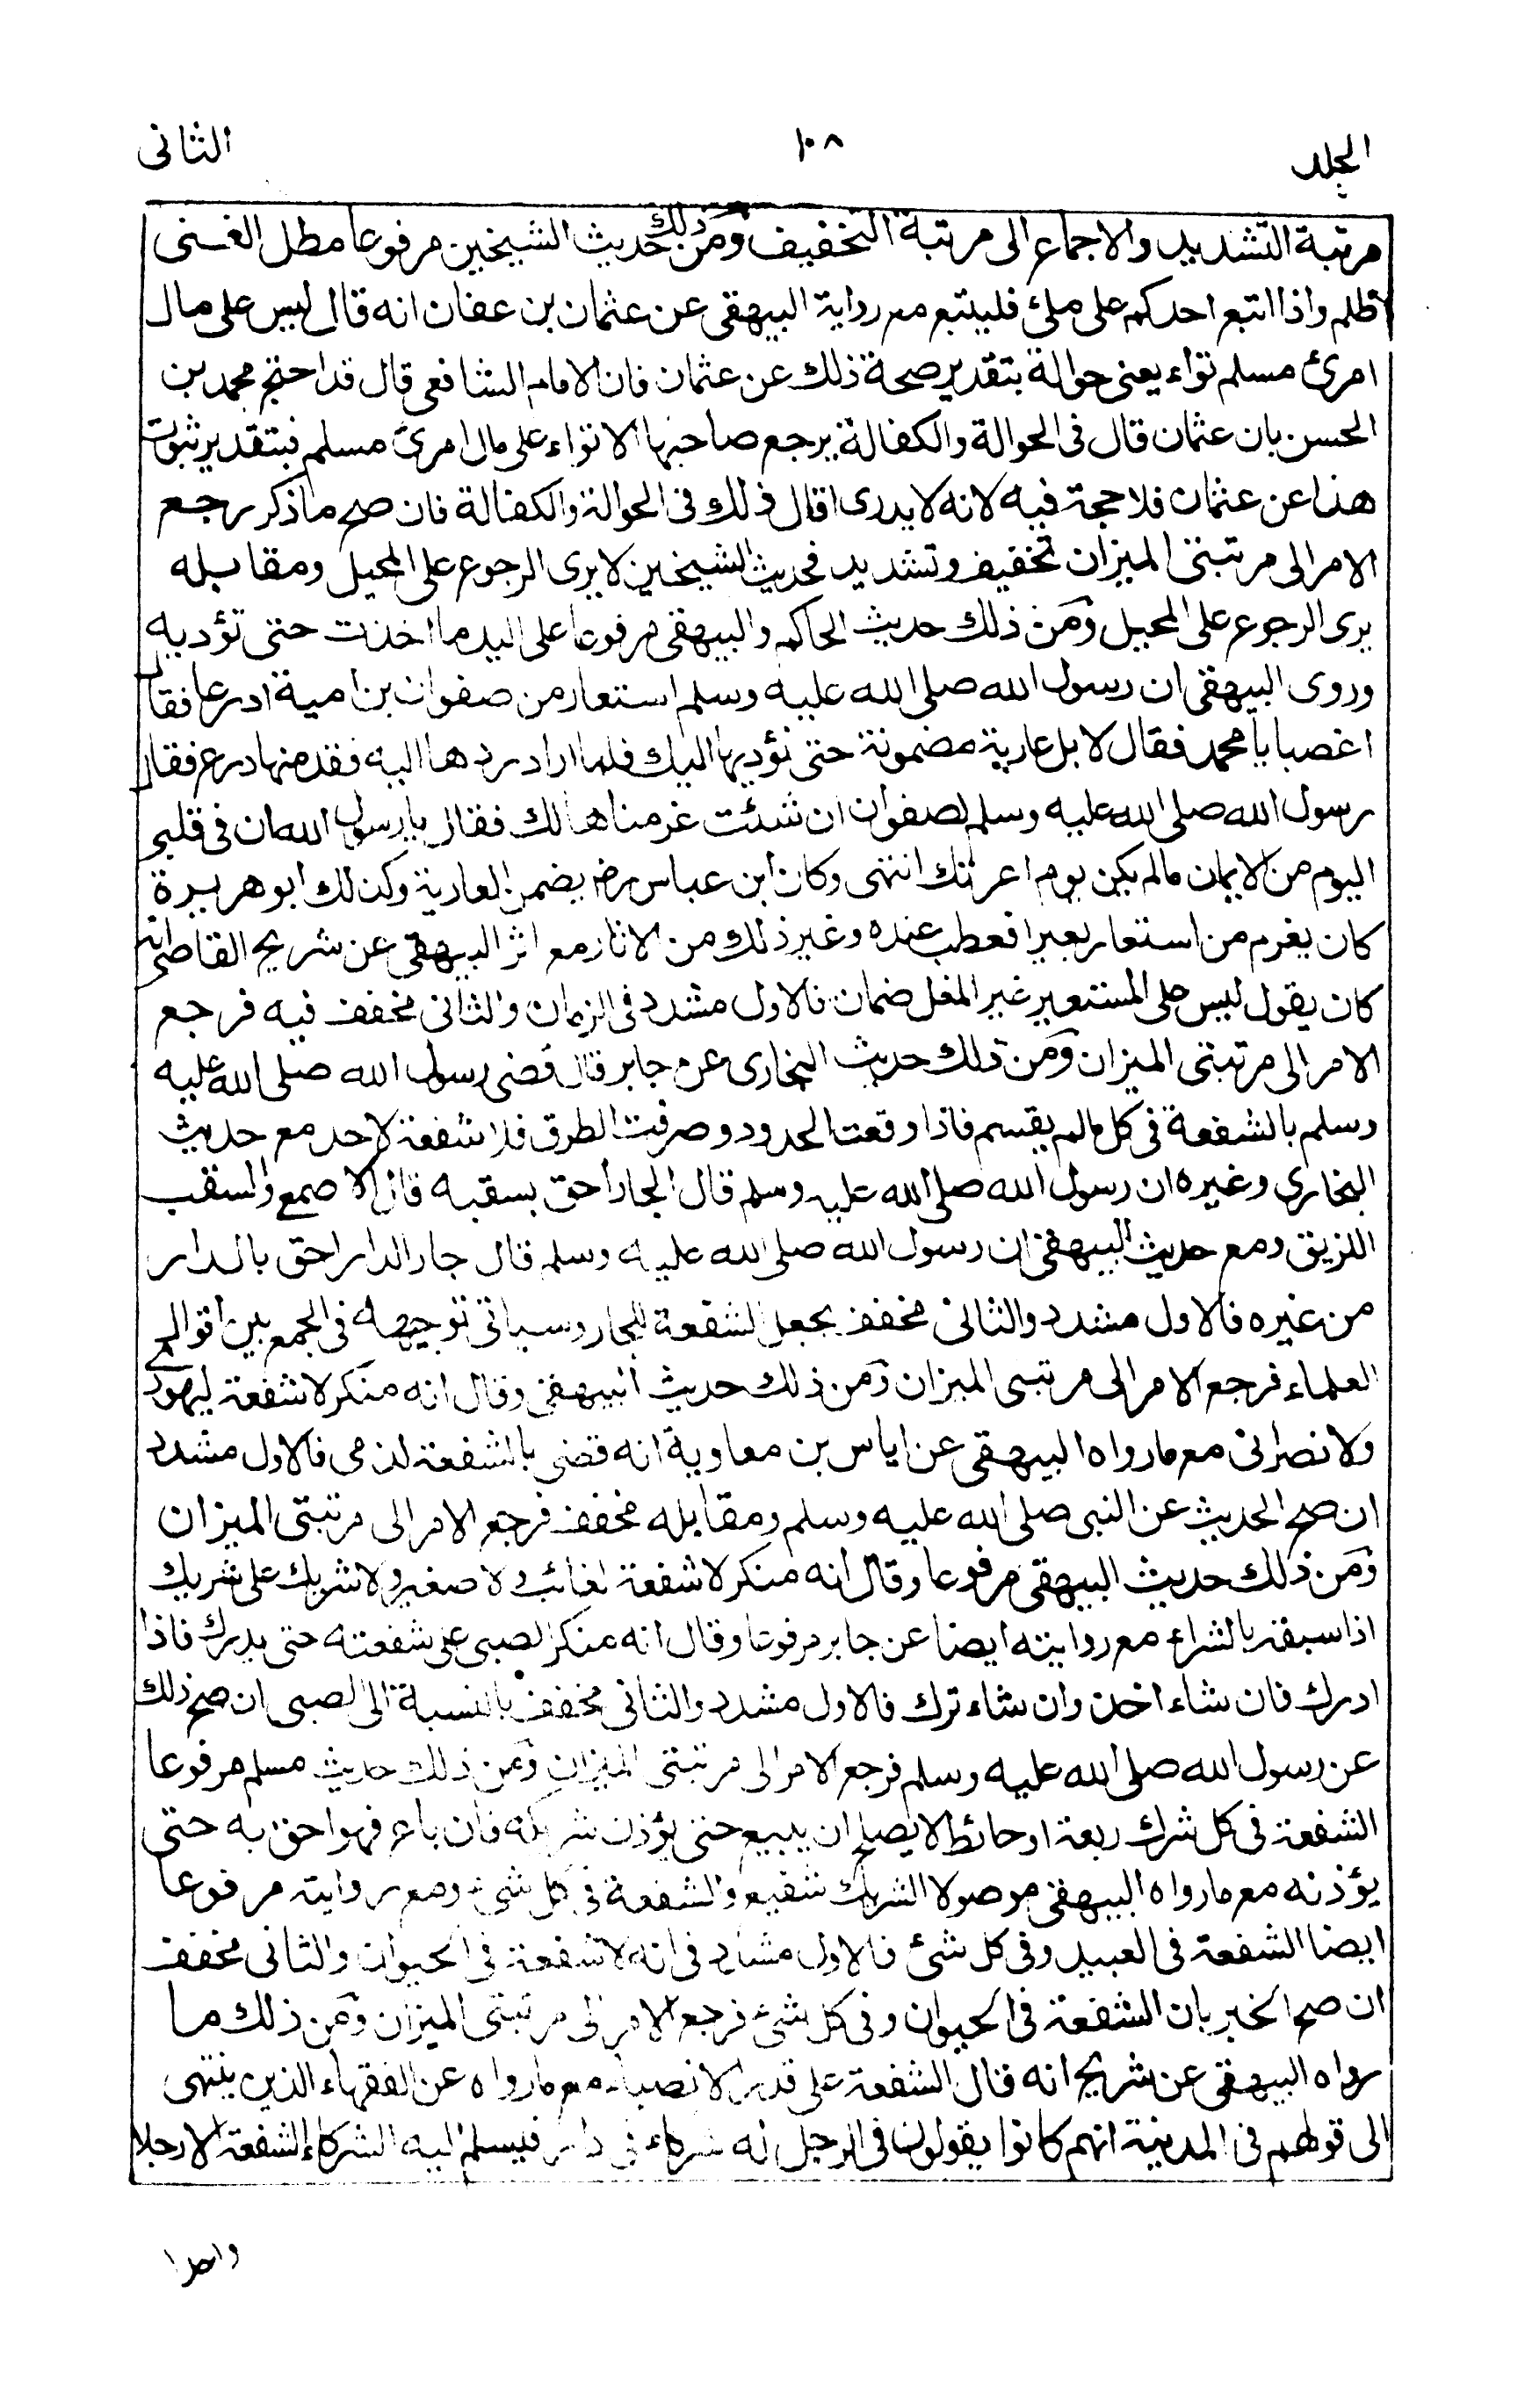 الجلد ١٠٨ الثانى
مرتبة التشديد والاجماع الى مرتبة التخفيف ومن ذلك حديث الشيخين مرفوعا مطل الغنى
ظلم واذا اتبع احدكم على ملئ فليتبع مع رواية البيهقى عن عثمان بن عفان انه قال ليس على مال
امرئ مسلم تواء يعنى حوالة بتقدير صحة ذلك عن عثمان فان الامام الشافعى قال قد احتج محمد بن
الحسن بان عثمان قال فى الحوالة والكفالة يرجع صاحبها لا تواء على مال امرئ مسلم فبتقدير ثبوت
هذا عن عثمان فلا حجة فيه لانه لا يدرى اقال ذلك فى الحوالة والكفالة فان صح ما ذكر رجع
الامر الى مرتبتى الميزان تخفيف وتشديد فحديث الشيخين لا يرى الرجوع على المحيل ومقابله
يرى الرجوع على المحيل ومن ذلك حديث الحاكم والبيهقى مرفوعا على اليد ما اخذت حتى تؤديه
وروى البيهقى ان رسول الله صلى الله عليه وسلم استعار من صفوان بن امية ادرعا فقال
اغصبا يا محمد فقال لا بل عارية مضمونة حتى نؤديها اليك فلما اراد ردها اليه فقد منها درع فقال
رسول الله صلى الله عليه وسلم لصفوان ان شئت غرمناها لك فقال يا رسول الله ان فى قلبى
اليوم من الايمان ما لم يكن يوم اعرتك انتهى وكان ابن عباس رضـ يضمن العارية وكذلك ابو هريرة
كان يغرم من استعار بعيرا فعطب عنده وغير ذلك من الاثار مع اثر البيهقى عن شريح القاضى انه
كان يقول ليس على المستعير غير المغل ضمان فالاول مشدد فى الزمان والثانى مخفف فيه فرجع
الامر الى مرتبتى الميزان ومن ذلك حديث البخارى عن جابر قال قضى رسول الله صلى الله عليه
وسلم بالشفعة فى كل مالم يقسم فاذا وقعت الحدود وصرفت الطرق فلا شفعة لاحد مع حديث
البخارى وغيره ان رسول الله صلى الله عليه وسلم قال الجار احق بسقبه قال الاصمع والسقب
اللزيق ومع حديث البيهقى ان رسول الله صلى الله عليه وسلم قال جار الدار احق بالدار
من غيره فالاول مشدد والثانى مخفف بجعل الشفعة للجار وسياتى توجيهه فى الجمع بين اقوال
العلماء فرجع الامر الى مرتبتى الميزان ومن ذلك حديث البيهقى وقال انه منكر لا شفعة ليهود
ولا نصرانى مع ما رواه البيهقى عن اياس بن معاوية انه قضى بالشفعة لذمى فالاول مشدد
ان صح الحديث عن النبى صلى الله عليه وسلم ومقابله مخفف فرجع الامر الى مرتبتى الميزان
ومن ذلك حديث البيهقى مرفوعا وقال انه منكر لا شفعة لغائب ولا صغير ولا شريك على شريك
اذا سبقه بالشراء مع روايته ايضا عن جابر مرفوعا وقال انه منكر الصبى على شفعته حتى يدرك فاذا
ادرك فان شاء اخذ وان شاء ترك فالاول مشدد والثانى مخفف بالنسبة الى الصبى ان صح ذلك
عن رسول الله صلى الله عليه وسلم فرجع الامر الى مرتبتى الميزان ومن ذلك حديث مسلم مرفوعا
الشفعة فى كل شرك ربعة او حائط لا يصلح ان يبيع حتى يؤذن شريكه فان باع فهو احق به حتى
يؤذنه مع ما رواه البيهقى موصولا الشريك شفيع والشفعة فى كل شئ ومع روايته مرفوعا
ايضا الشفعة فى العبيد وفى كل شئ فالاول مشدد فى انه لا شفعة فى الحيوان والثانى مخفف
ان صح الخبر بان الشفعة فى الحيوان وفى كل شئ فرجع الامر الى مرتبتى الميزان ومن ذلك ما
رواه البيهقى عن شريح انه قال الشفعة على قدر الانصباء مع ما رواه عن الفقهاء الذين ينتهى
الى قولهم فى المدينة انهم كانوا يقولون فى الرجل له شركاء فى دار فيسلم اليه الشركاء الشفعة الا رجلا
واحدا